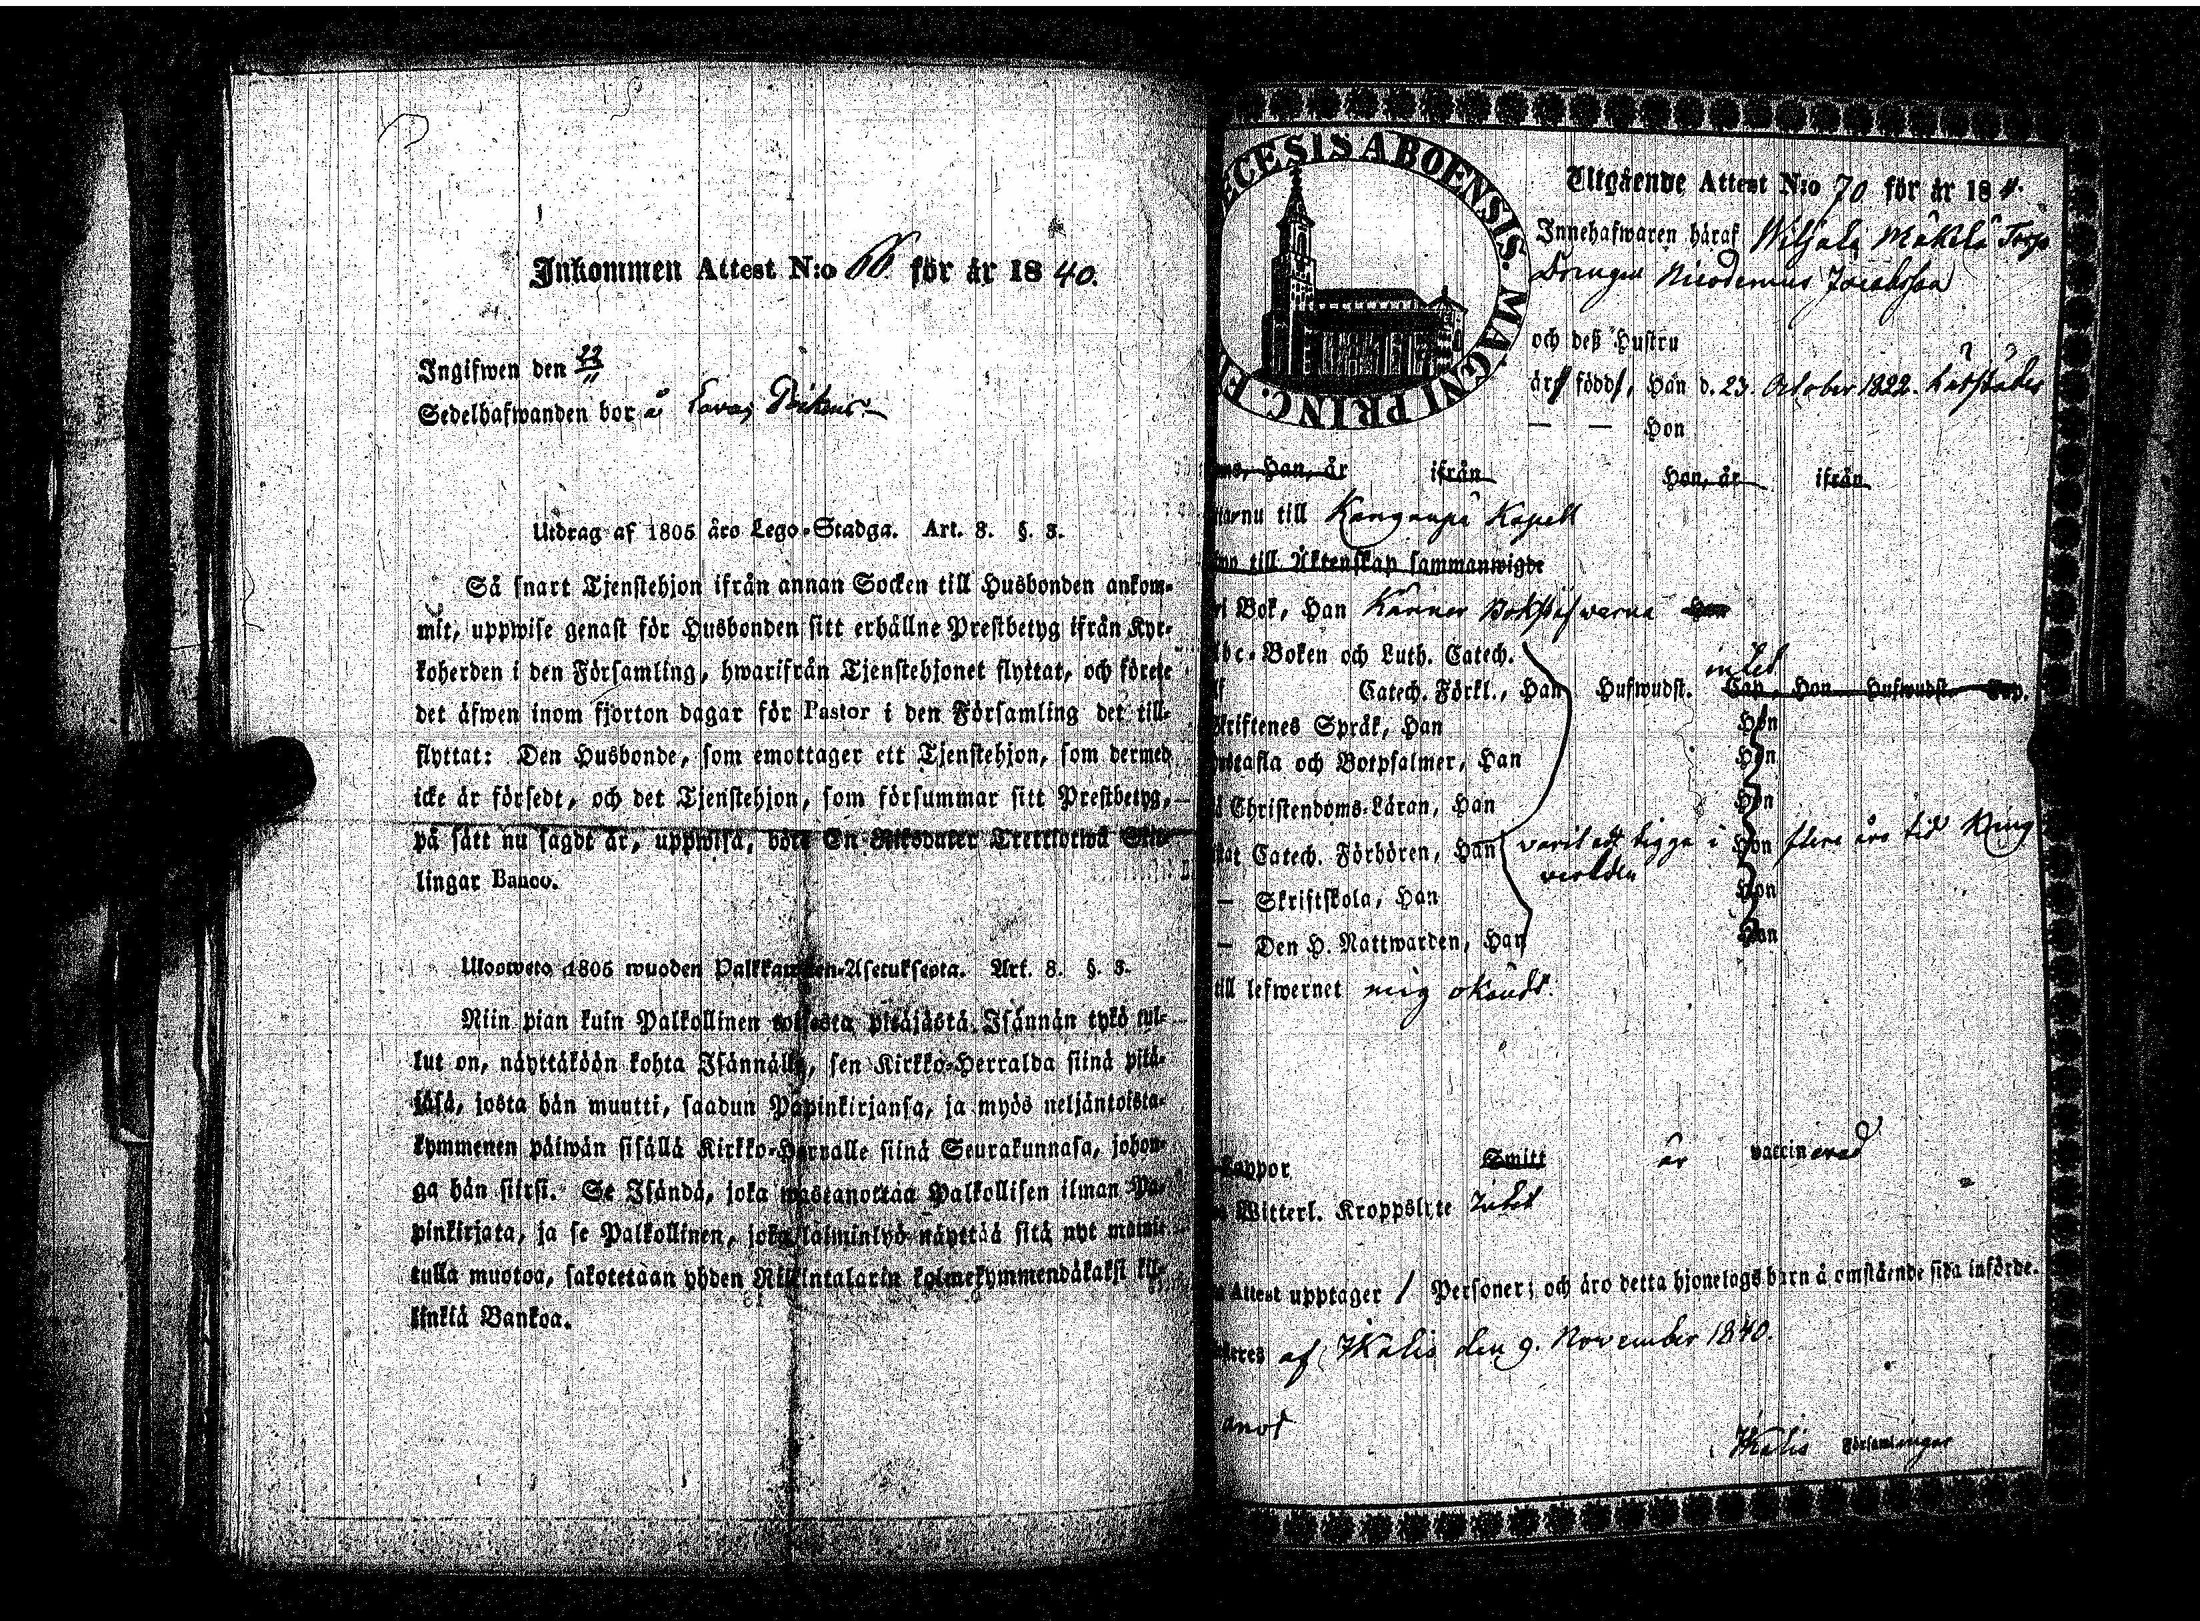 Inkommen Attest N:o 66 för år 1840.
Ingifwen den 22/11
Sedelhafwanden bor å
Utdrag af 1805 års Lego-Stadga. Art. 8. §. 3.
Så snart Tjenstehjon ifrån annan Socken till Husbonden ankom-
mit, uppwise genast för Husbonden sitt erhållne Prestbetyg ifrån Kyr-
koherden i den Församling, hwarifrån Tjenstehjonet flyttat, och förete
det äfwen inom fjorton dagar för Pastor i den Församling det till-
flyttat: Den Husbonde, som emottager ett Tjenstehjon, som dermed
icke är försedt, och det Tjenstehjon, som försummar sitt Prestbetyg,
på sätt nu sagdt är, uppwisa, böte En Riksdaler Trettiotwå Skil-
lingar Banco.
Ulosweto 1805 wuoden Palkkawäen-Asetuksesta. Art. 8. §. 3.
Niin pian kuin Palkollinen toisesta pitäjästä Isännän tykö tul-
lut on, näyttäköön kohta Isännälle, sen Kirkko-Herralda siinä pitä-
jäsä, josta hän muutti, saadun Papinkirjansa, ja myös neljäntoista-
kymmenen päiwän sisällä Kirkko-Herralle siinä Seurakunnasa, johon-
ga hän siirsi. Se Isändä, joka wastanottaa Palkollisen ilman Pa-
pinkirjata, ja se Palkollinen, joka laiminlyö näyttää sitä nyt mainit-
tulla muotoa, sakotetaan yhden Riikintalarin kolmekymmendäkaksi kil-
linkiä Bankoa.
ECESIS ABOENSIS. MAGNI PRINC. F
Utgående Attest N:o 70 för år 184
Innehafwaren häraf Wiljala Mäkelä Torp
Drengen Nicodemus Jacobsson
och deß Hustru
är född, Han d. 23. October 1822.
— — Hon
Han, är ifrån Hon, är ifrån
nu till Kangaspä Kapell
till Äktenskap sammanwigde
Bok, Han Känner Bokstäfwarna Hon
Abc-Boken och Luth. Catech.
intet
Catech. Förkl., Han Hufwudst. Cap. Hon Hufwudst. Cap.
Skriftenes Språk, Han Hon
Hustafla och Botpsalmer, Han Hon
Christendoms-Läran, Han Hon
Catech. Förhören, Han varit att tigga i Hon flere års tid kring
verlden
— Skriftskola, Han Hon
— Den H. Nattwarden, Han Hon
till lefwernet mig okändt.
Koppor Smitt är vaccinerad
Witterl. Kroppslyte Intet
Attest upptager 1 Personer; och äro detta hjonelags barn å omstående sida införde.
af Ikalis den 9. November 1840.
Ikalis Församlingar